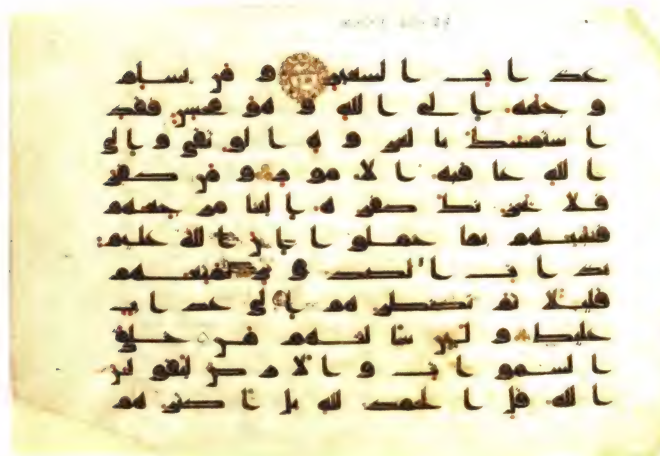 عذاب السعير ومن يسلم
وجهه الى الله وهو محسن فقد
استمسك بالعروة الوثقى والى
الله عاقبة الامور ومن كفر
فلا يحزنك كفره الينا مرجعهم
فننبئهم بما عملوا ان الله عليم
بذات الصدور نمتعهم
قليلا ثم نضطرهم الى عذاب
غليظ ولئن سالتهم من خلق
السموات والارض ليقولن
الله قل الحمد لله بل اكثرهم